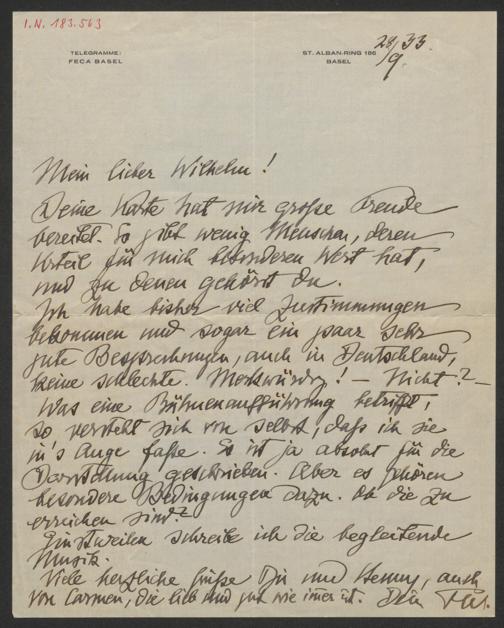 I.N. 183.563
TELEGRAMME:
FECA BASEL
ST. ALBAN-RING 186
BASEL
28/9. 33.
Mein lieber Wilhelm!
Deine Karte hat mir große Freude
bereitet. Es gibt wenig Menschen, deren
Urteil für mich besonderen Wert hat,
und zu denen gehörst du.
Ich habe bisher viel Zustimmungen
bekommen und sogar ein paar sehr
gute Besprechungen, auch in Deutschland,
keine schlechte. Merkwürdig! – Nicht? –
Was eine Bühnenaufführung betrifft,
so versteht sich von selbst, daß ich sie
in's Auge faße. Es ist ja absolut für die
Darstellung geschrieben. Aber es gehören
besondere Bedingungen dazu. Ob die zu
erreichen sind?
Einstweilen schreibe ich die begleitende
Musik.
Viele herzliche Grüße Dir und Henny, auch
von Carmen, die lieb und gut wie immer ist. Dein